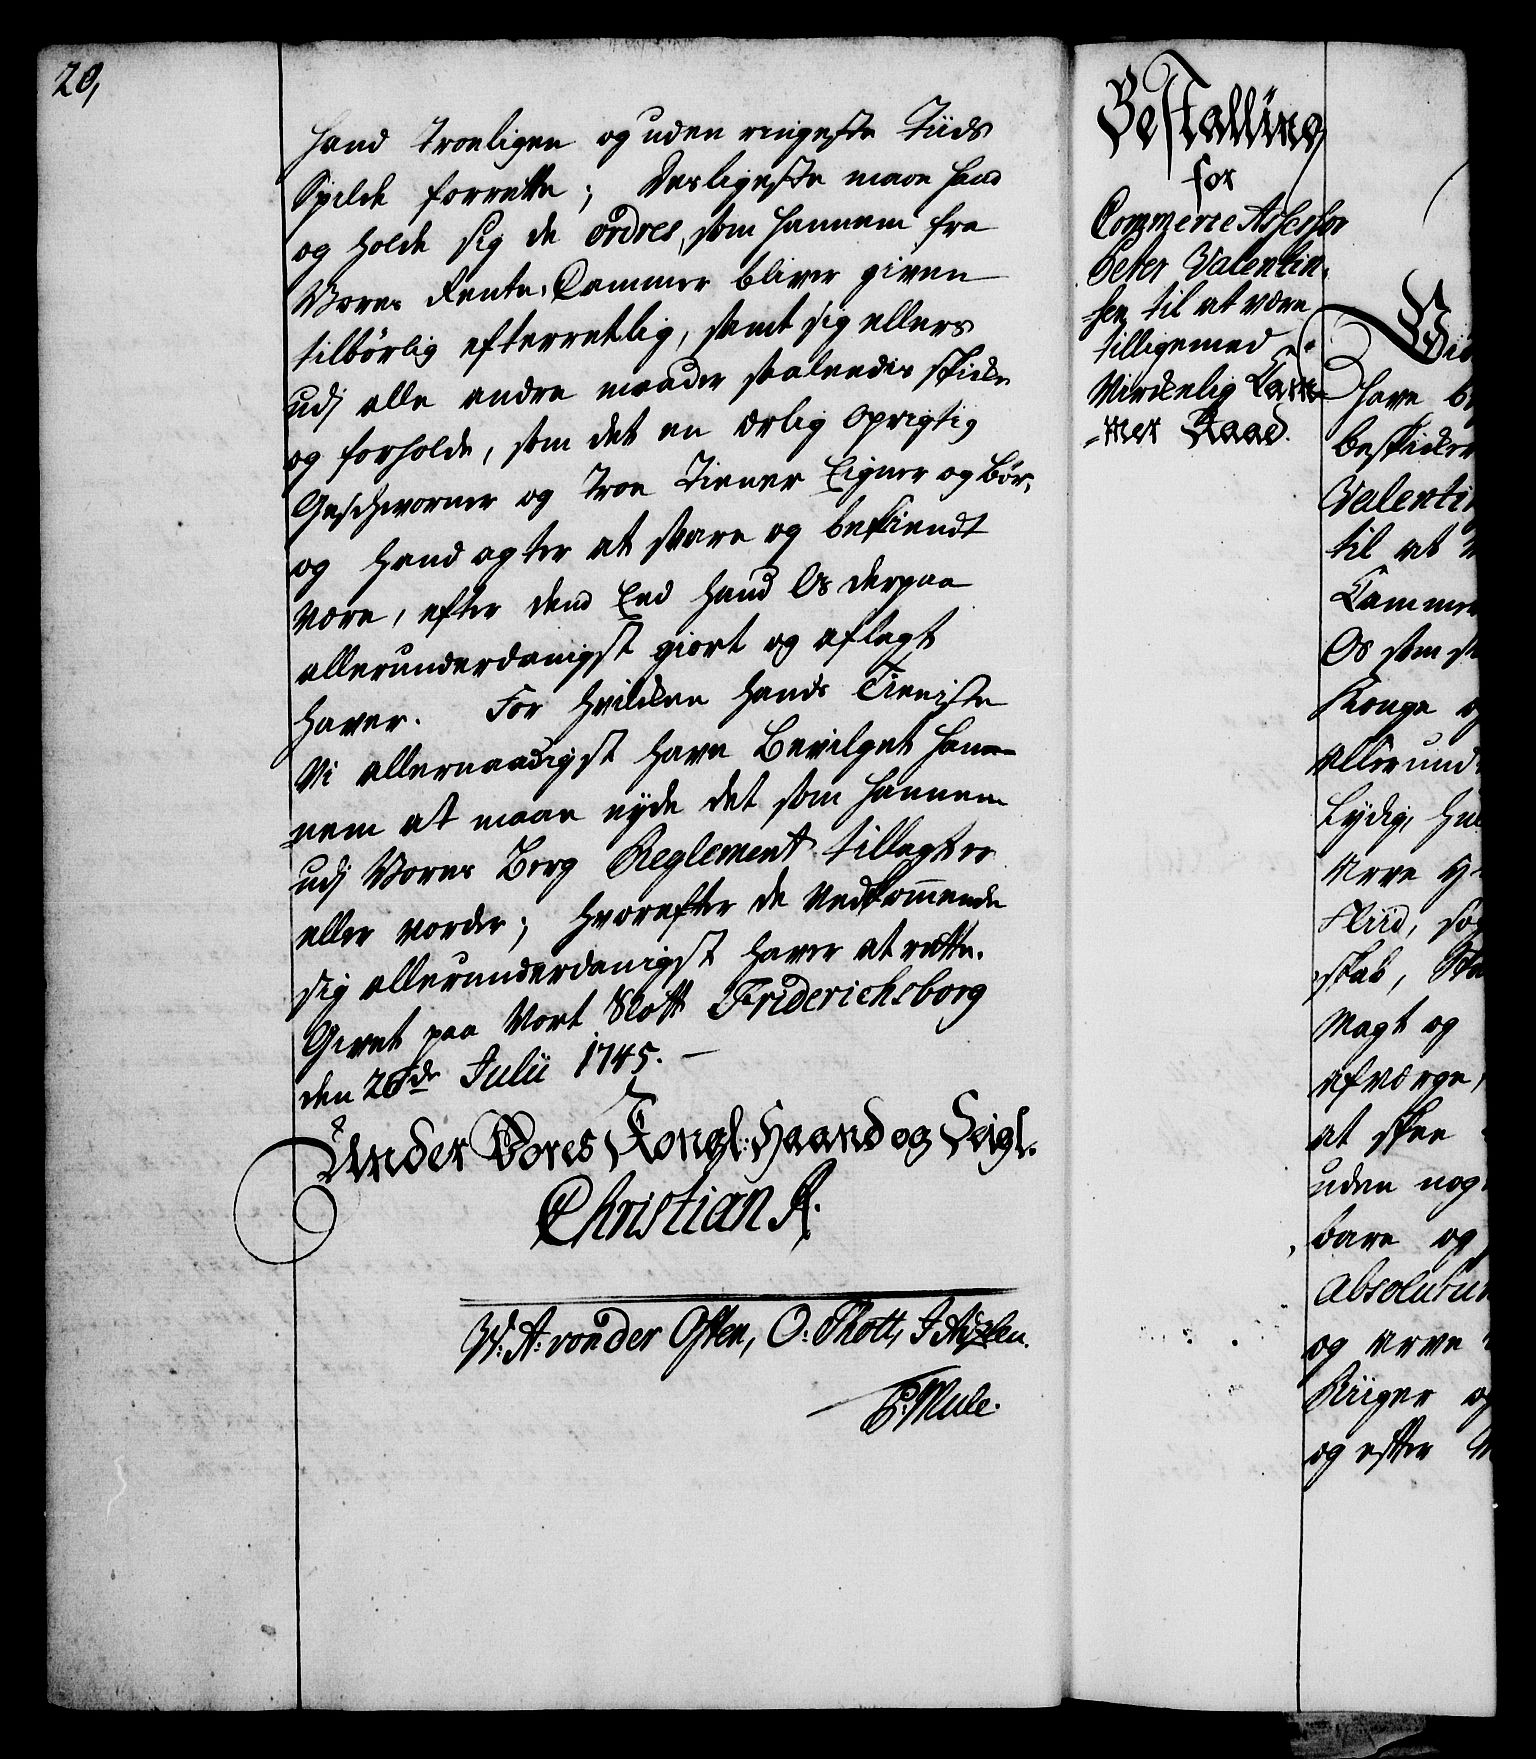 20,
hand troeligen og uden ringeste Tiids
Spilde forrette; Desligeste maae hand
og holde sig de ordres, som hannem fra
Vores Rente-Cammer bliver given
tilbørlig efterretlig, samt sig ellers
udj alle andre maader saaledes skicke
og forholde, som det en ærlig oprigtig
Geschworner og troe Tiener Eigner og bør,
og hand agter at svare og bekiendt
være, efter dend Eed hand Os derpaa
allerunderdanigst giort og aflagt
haver. For hvilcken hands Tieniste
Vi allernaadigst have bevilget han-
nem at maae nyde det som hannem
udj Vores Berg Reglement tillagt er
eller vorder; hvorefter de Vedkommende
sig allerunderdanigst haver at rette.
Givet paa Vort Slott Friderichsborg
den 26de Julii 1745.
Under Vores Kongl: Haand og Seigl.
Christian R.
W: A: von der Osten, O: Thott, J Aüxlen.
P: Mule.
Bestalling
for
Commerce Assessor
Peter Valentin-
sen til at være
tilligemed
Virckelig Cam-
mer Raad.
Vid
have be
beskicker
Valentin
til at
Cammer
Os som s
Konge og
Allerund
Lydig, hul
Arve H
Fliid, søg
skab,
Magt og
afværge,
at skee
uden nog
bare og
Absolutum
og Arve
Riiger og
og efter